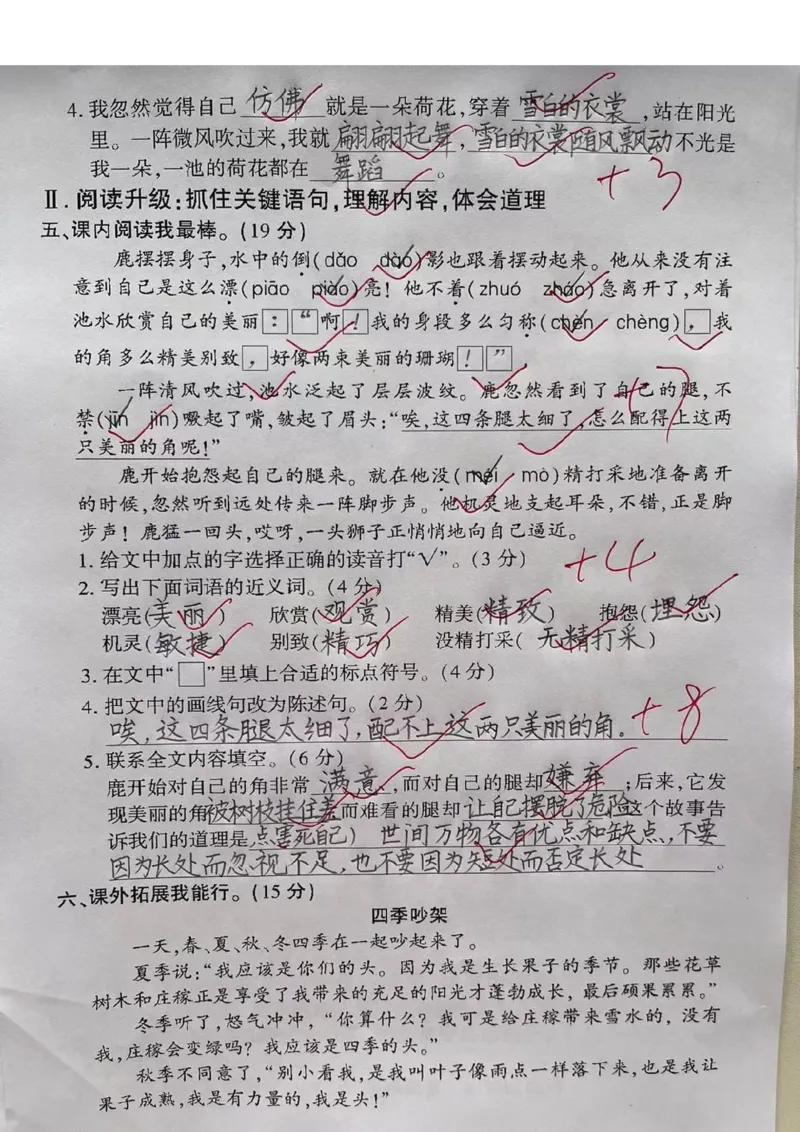 4.我忽然觉得自己 仿佛 就是一朵荷花,穿着 雪白的衣裳 ,站在阳光
里。一阵微风吹过来,我就 翩翩起舞 , 雪白的衣裳随风飘动 不光是
我一朵,一池的荷花都在 舞蹈 。
+3
Ⅱ.阅读升级:抓住关键语句,理解内容,体会道理
五、课内阅读我最棒。(19分)
鹿摆摆身子,水中的倒(dǎo dào)影也跟着摆动起来。他从来没有注
意到自己是这么漂(piāo piào)亮! 他不着(zhuó zháo)急离开了,对着
池水欣赏自己的美丽:“啊!我的身段多么匀称(chèn chèng),我
的角多么精美别致,好像两束美丽的珊瑚!”
一阵清风吹过,池水泛起了层层波纹。鹿忽然看到了自己的腿,不
禁(jīn jìn)噘起了嘴,皱起了眉头:“唉,这四条腿太细了,怎么配得上这两
只美丽的角呢!”
+7
鹿开始抱怨起自己的腿来。就在他没(méi mò)精打采地准备离开
的时候,忽然听到远处传来一阵脚步声。他机灵地支起耳朵,不错,正是脚
步声! 鹿猛一回头,哎呀,一头狮子正悄悄地向自己逼近。
1.给文中加点的字选择正确的读音打“√”。(3分)
+4
2.写出下面词语的近义词。(4分)
漂亮(美丽) 欣赏(观赏) 精美(精致) 抱怨(埋怨)
机灵(敏捷) 别致(精巧) 没精打采( 无精打采 )
3.在文中“□”里填上合适的标点符号。(4分)
4.把文中的画线句改为陈述句。(2分)
唉,这四条腿太细了,配不上这两只美丽的角。
+8
5.联系全文内容填空。(6分)
鹿开始对自己的角非常 满意 ,而对自己的腿却 嫌弃 ;后来,它发
现美丽的角被树枝挂住差而难看的腿却 让自己摆脱了危险这个故事告
诉我们的道理是 点害死自己) 世间万物各有优点和缺点,不要
因为长处而忽视不足,也不要因为短处而否定长处 。
六、课外拓展我能行。(15分)
四季吵架
一天,春、夏、秋、冬四季在一起吵起来了。
夏季说:“我应该是你们的头。因为我是生长果子的季节。那些花草
树木和庄稼正是享受了我带来的充足的阳光才蓬勃成长, 最后硕果累累。”
冬季听了,怒气冲冲, “你算什么? 我可是给庄稼带来雪水的, 没有
我,庄稼会变绿吗? 我应该是四季的头。”
秋季不同意了,“别小看我,是我叫叶子像雨点一样落下来,也是我让
果子成熟,我是有力量的,我是头!”